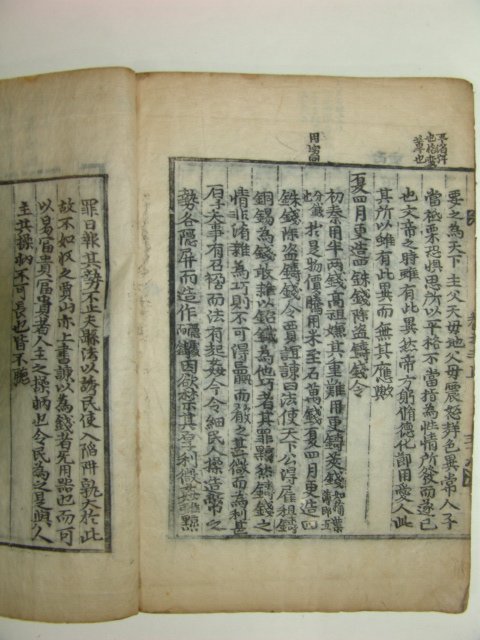 要之為天下主父天母地父母震怒詳色異常人子
當祗栗恐惧思所以平格不當指為性情所發而遂已
也文帝之時雖有此異然帝方躬脩德化節用愛人此
其所以雖有此異而無其應歟
夏四月更造四銖錢除盜鑄錢令
初秦用半兩錢高祖嫌其重難用更鑄莢錢如榆莢薄卽五
分錢也於是物價騰用米至石萬錢夏四月更造四
銖錢除盜鑄錢令賈誼諫曰法使天下公得雇租鑄
銅錫為錢敢雜以鉛鐵為他巧者其罪黥然鑄錢之
情非淆雜為巧則不可得贏而淆之甚微而為利甚
石夫事有召禍而法有起姦今令細民人操造幣之
勢各隱屏而造作因欲禁其厚利微姦雖黥
罪日報其勢不止夫縣法以誘民使入陷阱孰大於此
故不如收之賈山亦上書諫以為錢者无用器也而可
以易富貴富貴者人主之操柄也令民為之是與人
主共操柄不可長也皆不聽